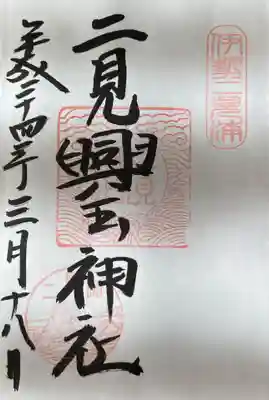 伊勢二見浦
二見興玉神社
平成二十四年三月十八日